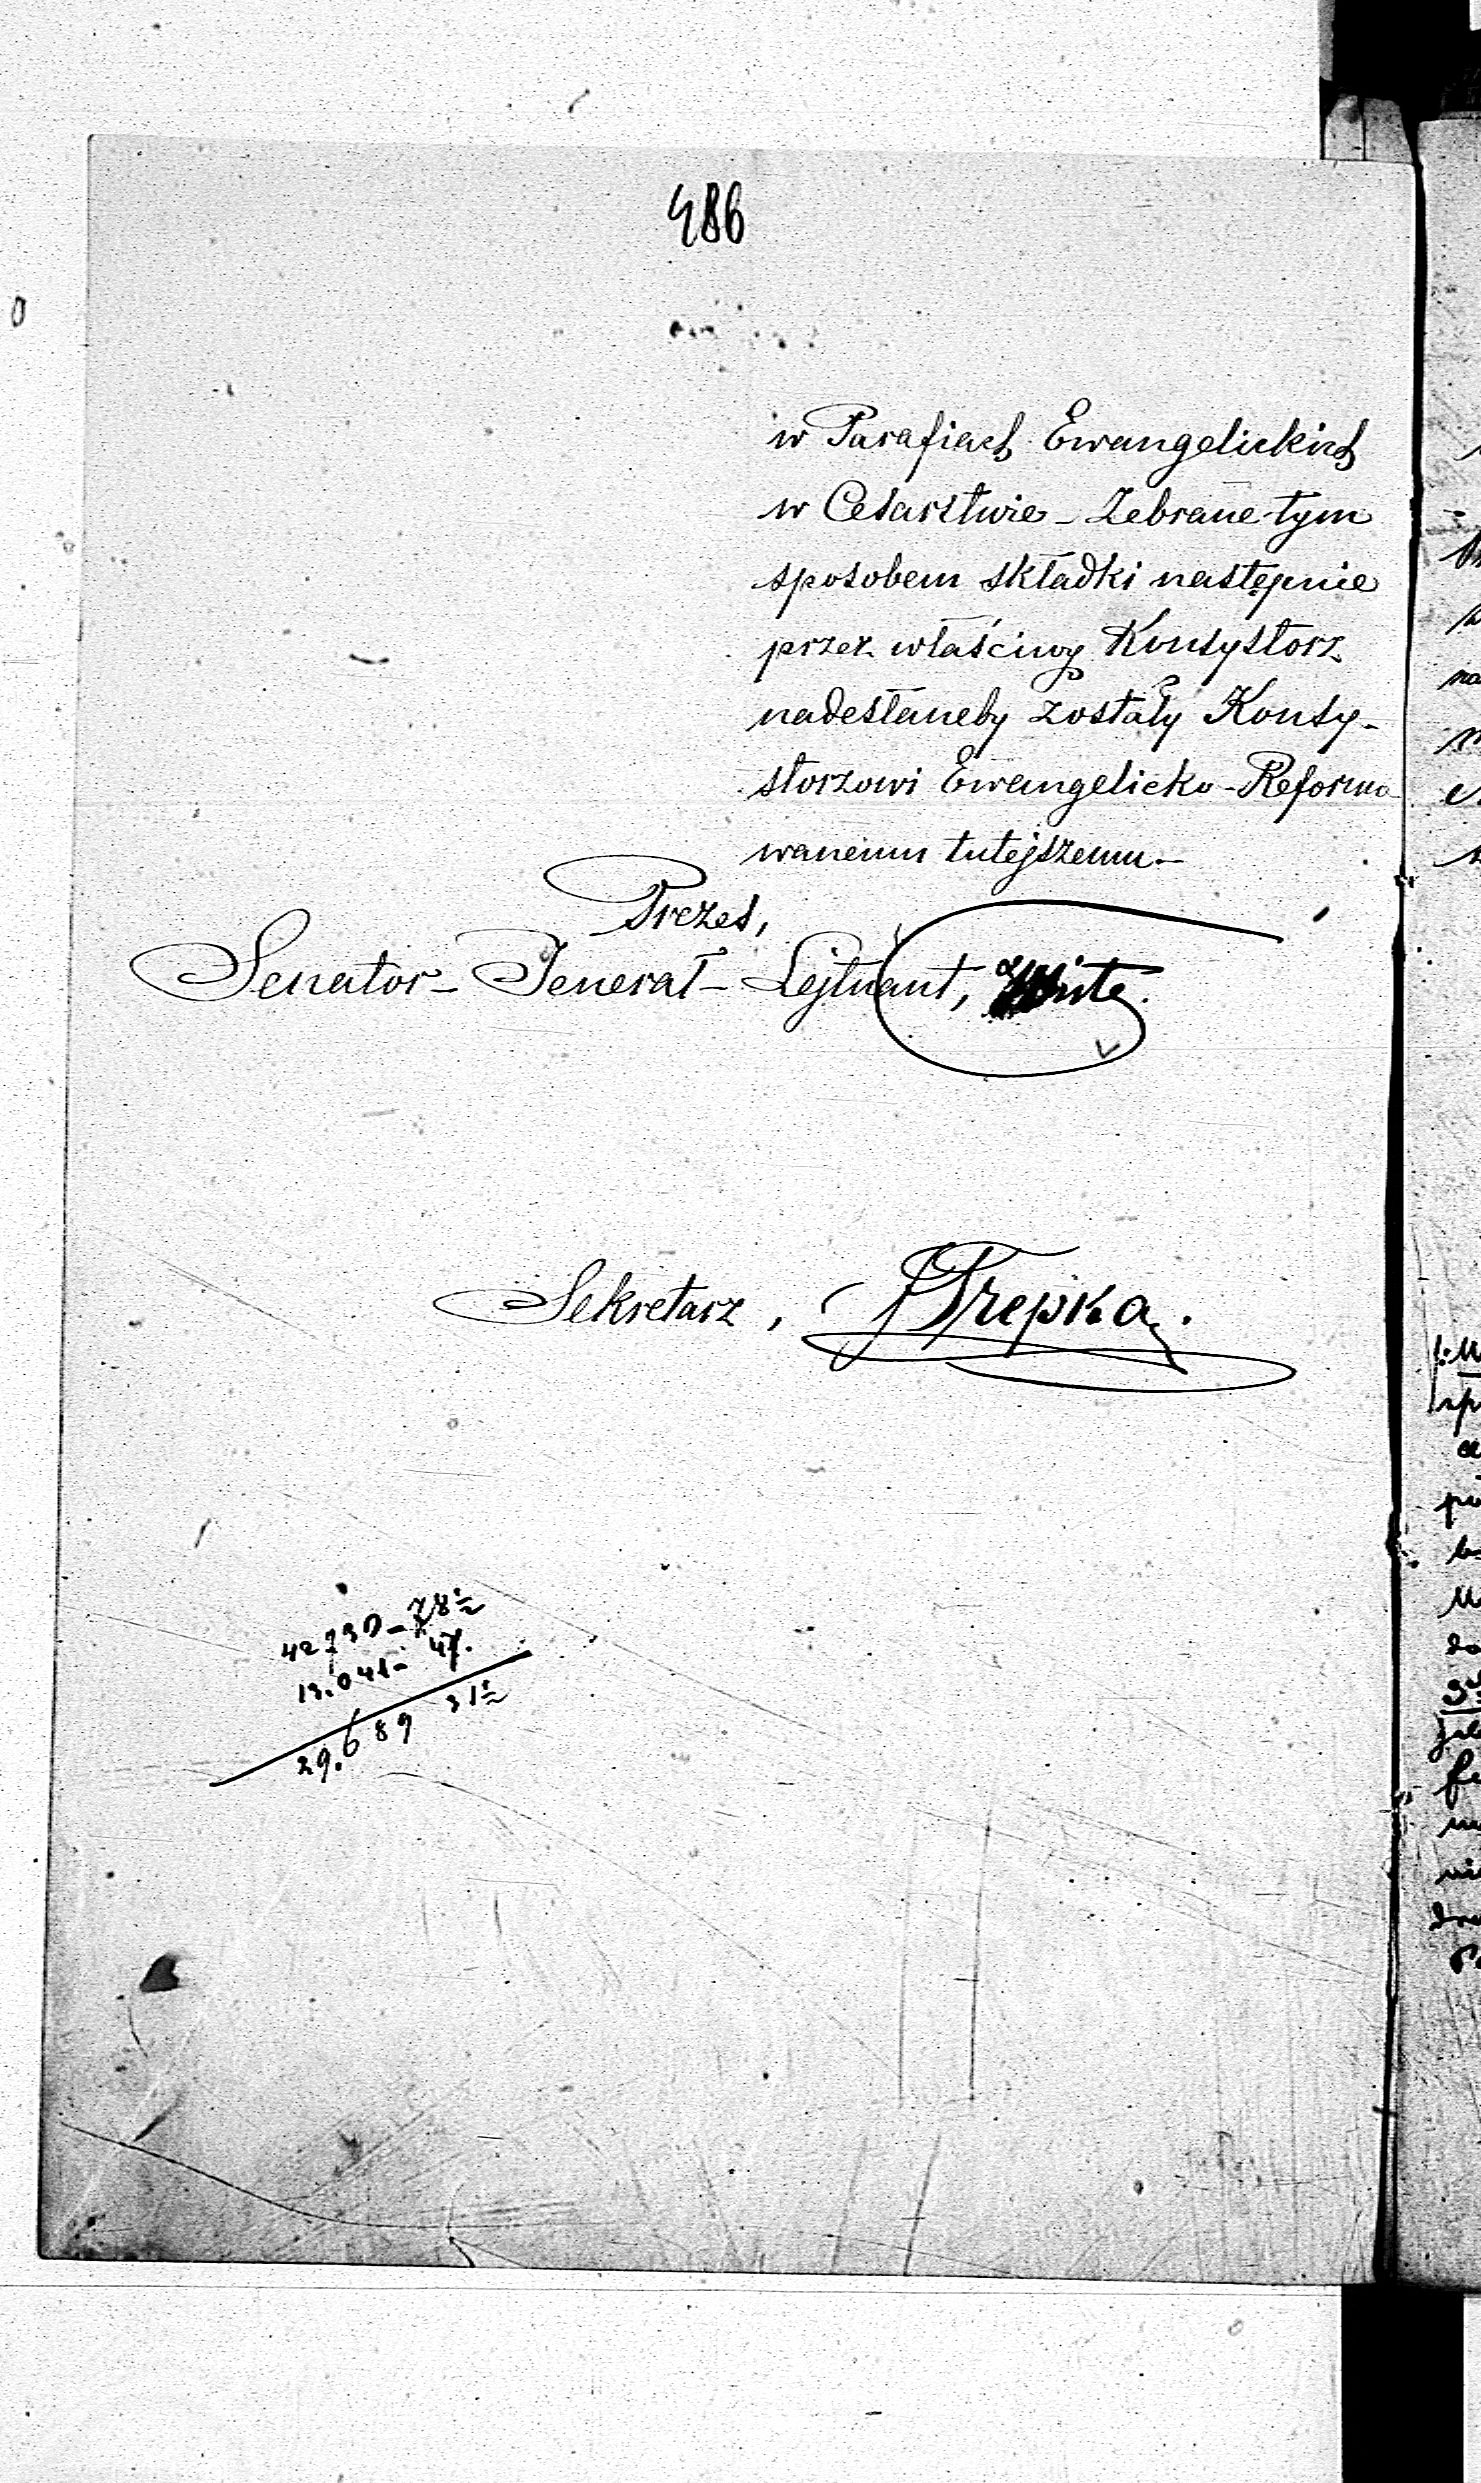 486
w Parafiach Ewangelickich
w Cesarstwie – Zebrane tym
sposobem składki następnie
przez właściwy Konsystorz
nadesłaneby zostały Konsy-
storzowi Ewangelicko-Reformo
wanemu tutejszemu.–
Prezes,
Senator – Jenerał – Lejtnant, Witte.
Sekretarz, J Trepka.
42730 – 78
13.041 – 47.
29.689 31